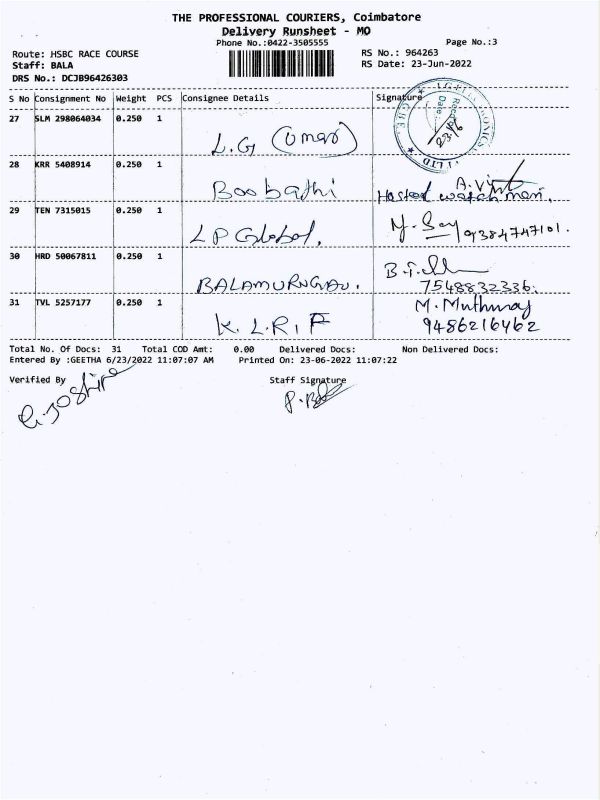 THE PROFESSIONAL COURIERS, Coimbatore
Delivery Runsheet - MO
Phone No.:0422-3505555
Page No.:3
Route: HSBC RACE COURSE
RS No.: 964263
Staff: BALA
RS Date: 23-Jun-2022
DRS No.: DCJB96426303
S No Consignment No Weight PCS Consignee Details Signature
27 SLM 298064034 0.250 1
L.G (Umar)
Recd
Date
23/6
28 KRR 5408914 0.250 1
Boobathi
A.Vint
Hostel watch man.
29 TEN 7315015 0.250 1
LP Global.
9384747101.
30 HRD 50067811 0.250 1
BALAMURUGAN.
7548832336.
31 TVL 5257177 0.250 1
K.L.R.F
M. Muthuraj
9486216462
Total No. Of Docs: 31 Total COD Amt: 0.00 Delivered Docs: Non Delivered Docs:
Entered By :GEETHA 6/23/2022 11:07:07 AM Printed On: 23-06-2022 11:07:22
Verified By Staff Signature